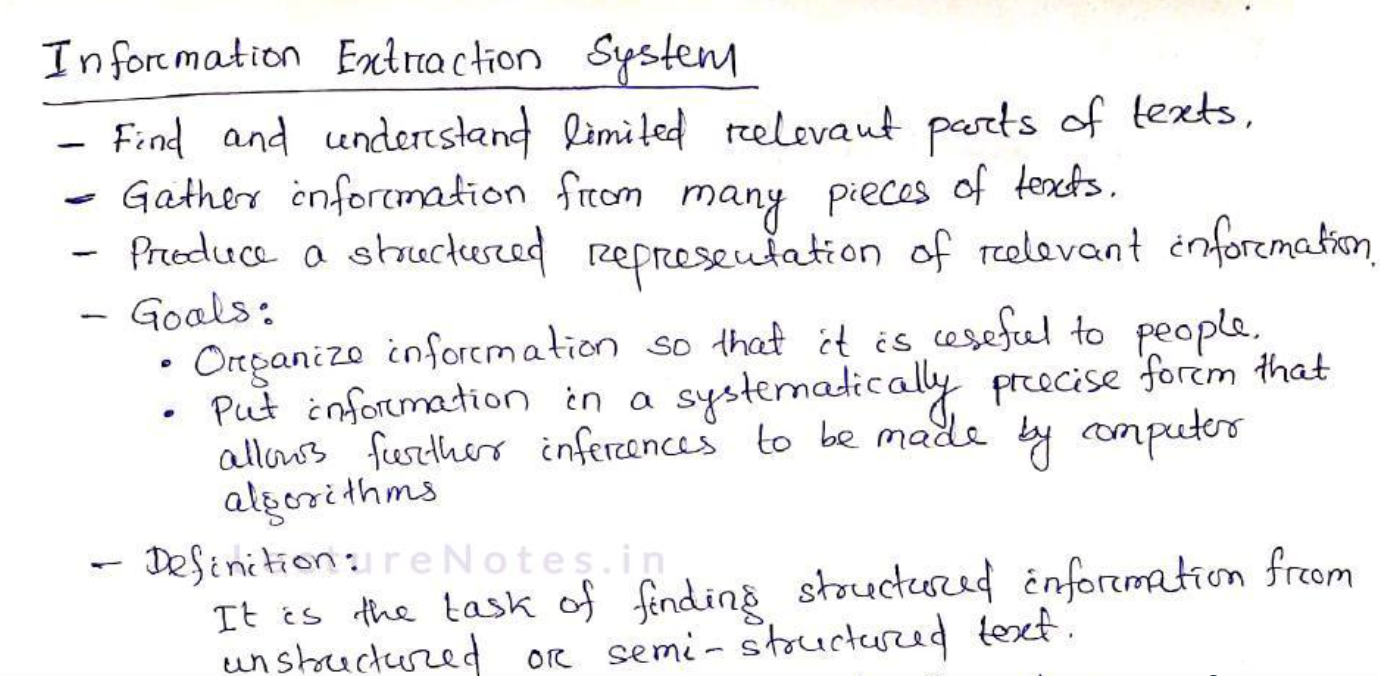 Information Extraction System
- Find and understand limited relevant parts of texts.
- Gather information from many pieces of texts.
- Produce a structured representation of relevant information.
- Goals:
• Organize information so that it is useful to people.
• Put information in a systematically precise form that
allows further inferences to be made by computer
algorithms
- Definition:
It is the task of finding structured information from
unstructured or semi-structured text.